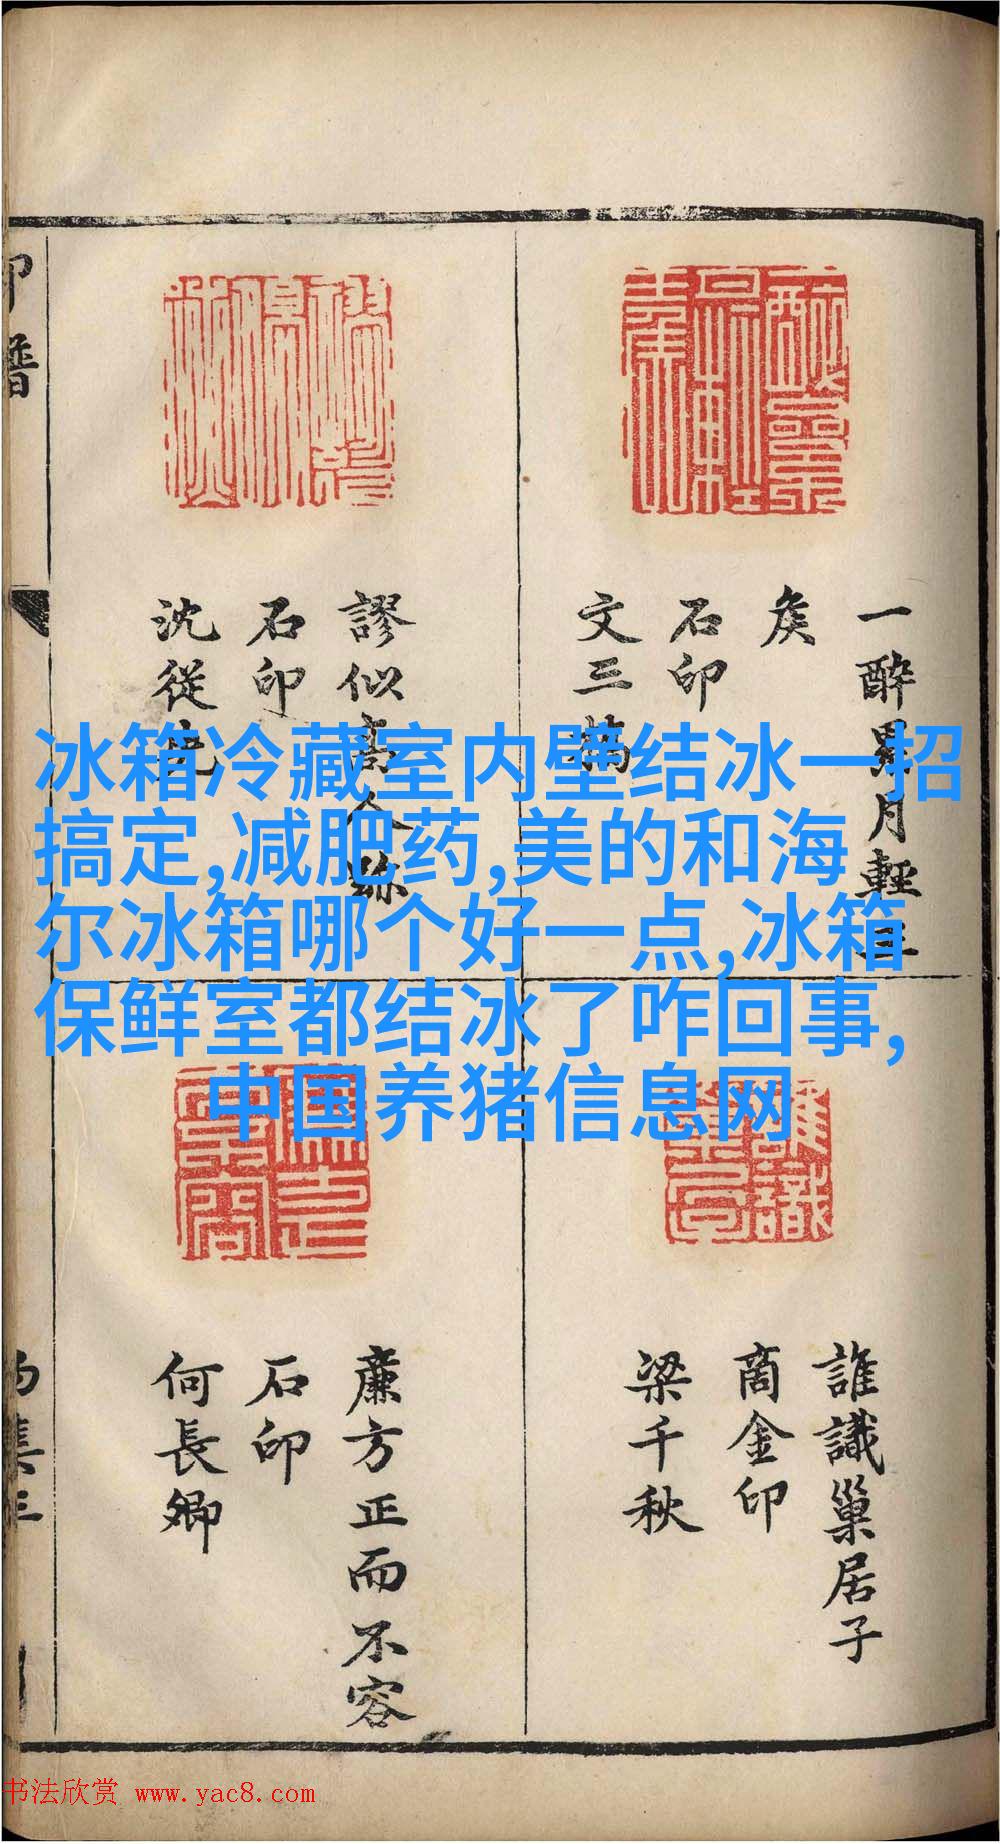 冰箱冷藏室内壁结冰一招
搞定,减肥药,美的和海
尔冰箱哪个好一点,冰箱
保鲜室都结冰了咋回事,
中国养猪信息网
一醉累月輕王
矦
石印
文三橋
謬似高人
石印
沈從先
誰識巢居子
商金印
梁千秋
廉方正而不容
石印
何長卿
印譜
书法欣赏 www.yac8.com